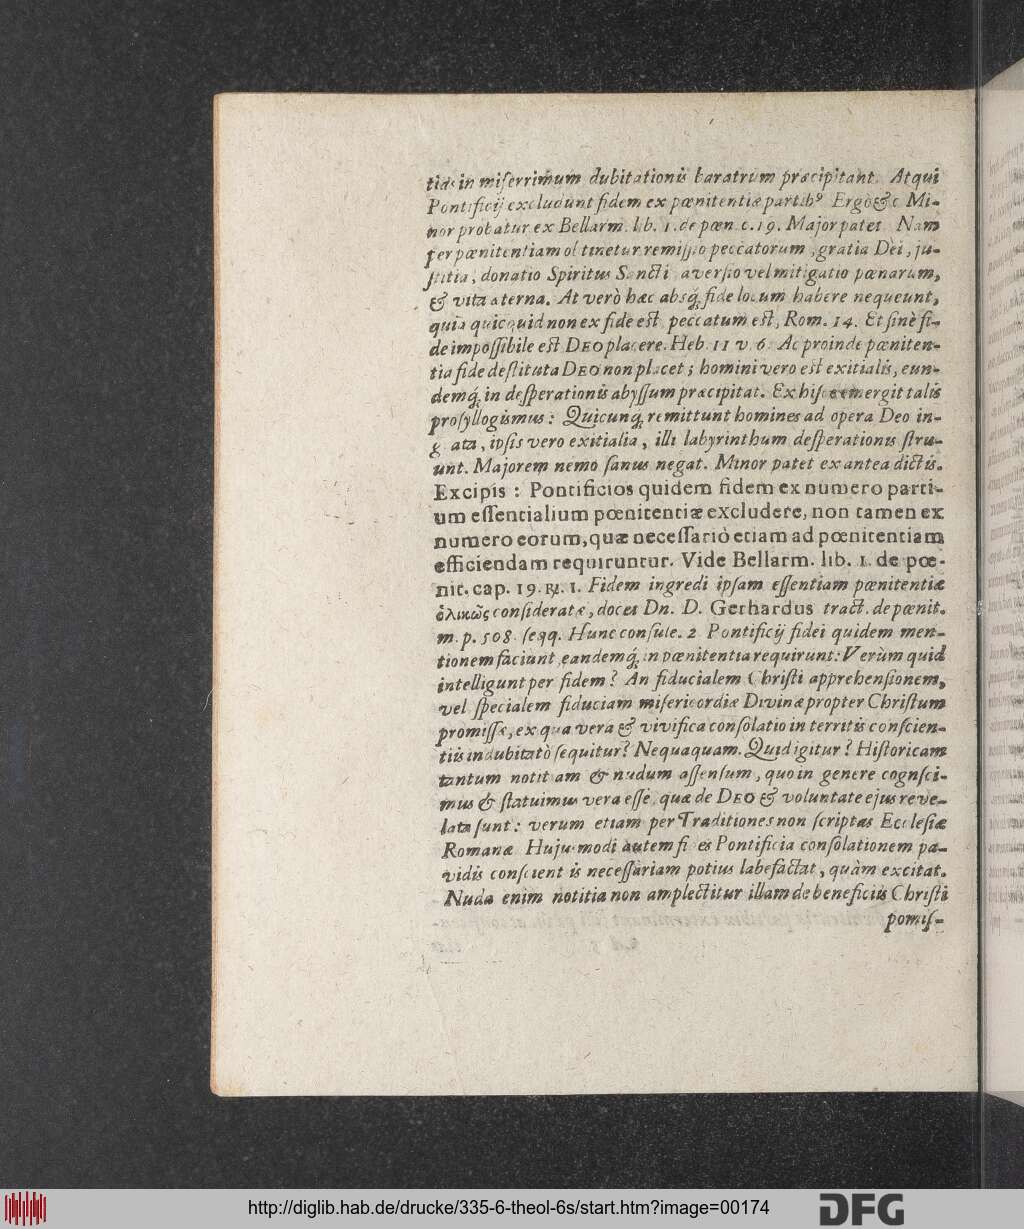 tias in miſerrimum dubitationis baratrum præcipitant. Atqui
Pontificij excludunt fidem ex pœnitentiæ partibꝰ Ergò &c. Mi-
nor probatur ex Bellarm. lib. 1. de pœn. c. 19. Major patet Nam
per pœnitentiam obtinetur remiſſio peccatorum, gratia Dei, ju-
ſtitia, donatio Spiritus Sancti, averſio vel mitigatio pœnarum,
& vita æterna. At verò hæc absq; fide locum habere nequeunt,
quia quicquid non ex fide eſt, peccatum eſt, Rom. 14. Et ſinè fi-
de impoſſibile eſt DEO placere. Heb. 11 v. 6. Ac proinde pœniten-
tia fide deſtituta DEO non placet; homini vero eſt exitialis, eun-
demq; in deſperationis abyſſum præcipitat. Ex his emergit talis
proſyllogismus: Quicunq; remittunt homines ad opera Deo in-
grata, ipſis vero exitialia, illi labyrinthum deſperationis ſtru-
unt. Majorem nemo ſanus negat. Minor patet ex antea dictis.
Excipis: Pontificios quidem fidem ex numero parti-
um eſſentialium pœnitentiæ excludere, non tamen ex
numero eorum, quæ neceſſariò etiam ad pœnitentiam
efficiendam requiruntur. Vide Bellarm. lib. 1. de pœ-
nit. cap. 19. ℞. 1. Fidem ingredi ipſam eſſentiam pœnitentiæ
ὁλικῶς conſideratæ, docet Dn. D. Gerhardus tract. de pœnit.
m. p. 508. ſeqq. Hunc conſule. 2 Pontificij fidei quidem men-
tionem faciunt, eandemq; in pœnitentia requirunt: Verùm quid
intelligunt per fidem? An fiducialem Chriſti apprehenſionem,
vel ſpecialem fiduciam miſericordiæ Divinæ propter Chriſtum
promiſſæ, ex qua vera & vivifica conſolatio in territis conſcien-
tiis indubitatò ſequitur? Nequaquam. Quid igitur? Hiſtoricam
tantum notitiam & nudum aſſenſum, quo in genere cognſci-
mus & ſtatuimus vera eſſe, quæ de DEO & voluntate ejus reve-
lata ſunt: verum etiam per Traditiones non ſcriptas Eccleſiæ
Romanæ Hujusmodi autem fides Pontificia conſolationem pa-
vidis conſcientiis neceſſariam potius labefactat, quàm excitat.
Nuda enim notitia non amplectitur illam de beneficiis Chriſti
pomiſ-
http://diglib.hab.de/drucke/335-6-theol-6s/start.htm?image=00174
DFG